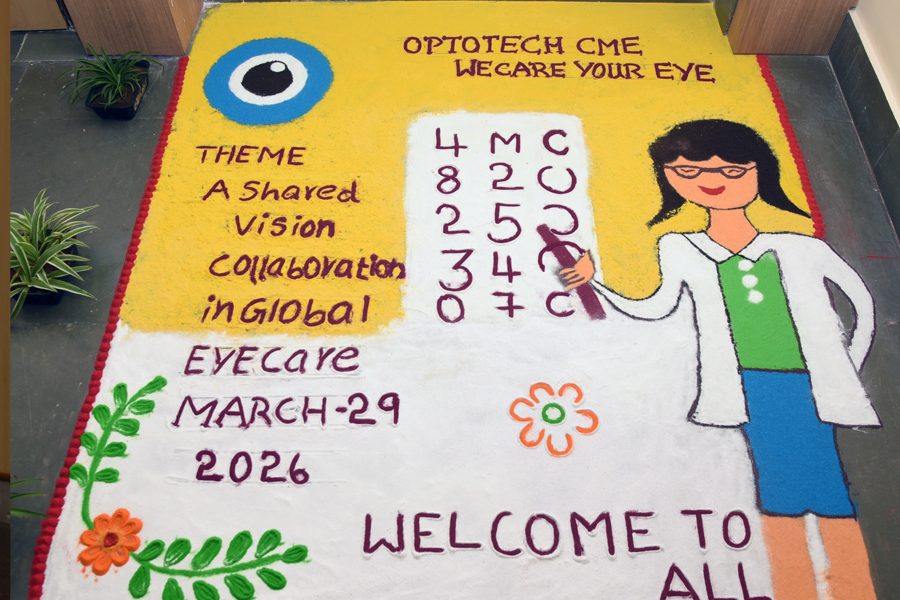 OPTOTECH CME
WECARE YOUR EYE
THEME
A Shared
Vision
Collaboration
in Global
EYECare
MARCH-29
2026
4 M C
8 2
2 5
3 4
0 7 C
WELCOME TO
ALL